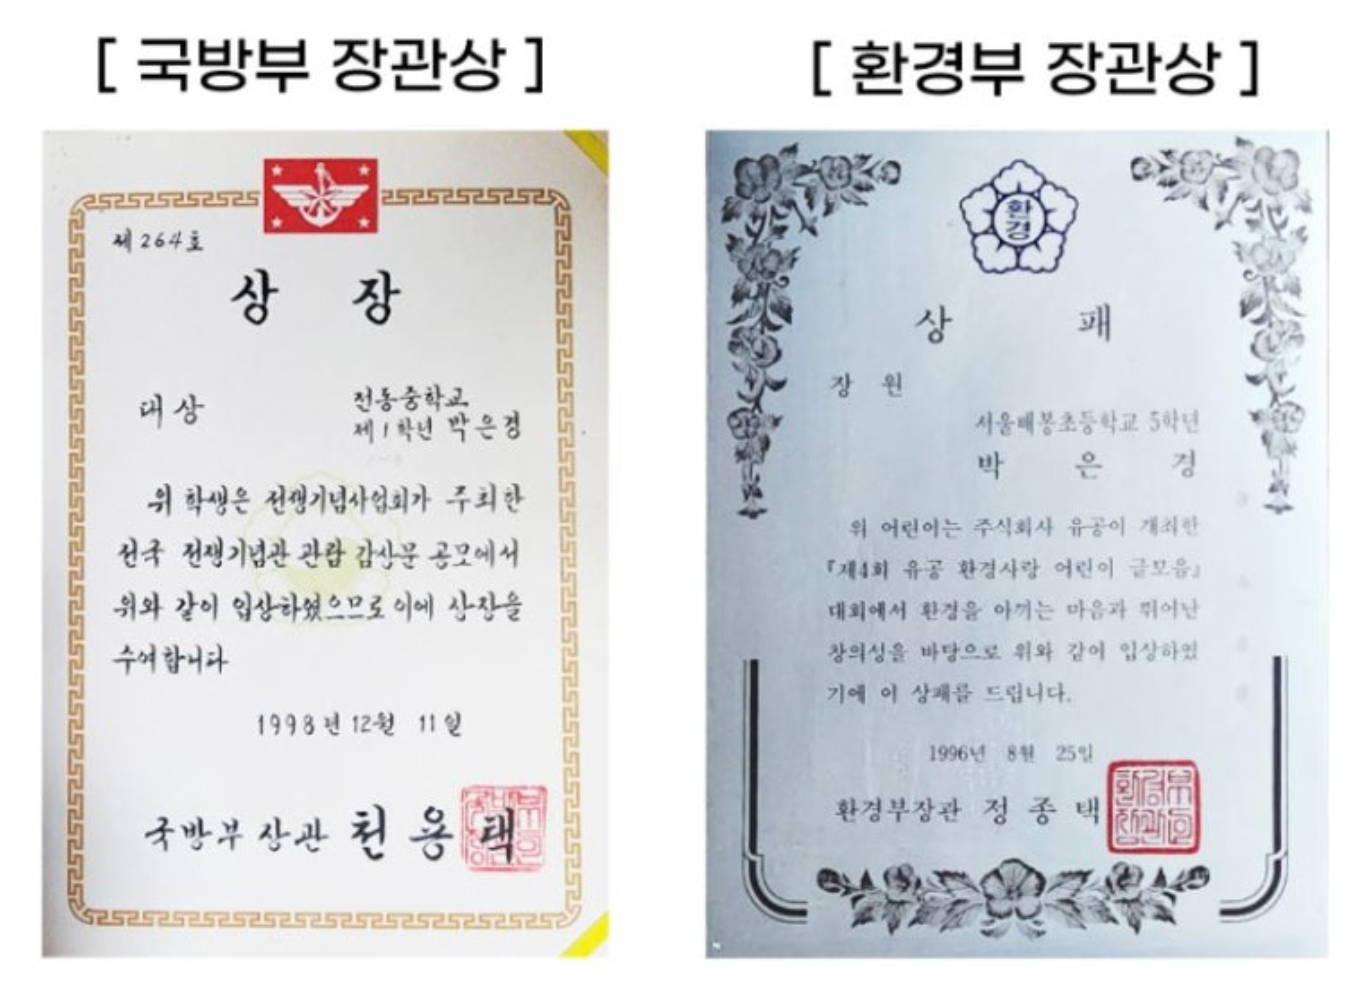 [ 국방부 장관상 ]
제 264호
상 장
대상
전동중학교
제 1 학년 박은경
위 학생은 전쟁기념사업회가 주최한
전국 전쟁기념관 관람 감상문 공모에서
위와 같이 입상하였으므로 이에 상장을
수여합니다
1998년 12월 11일
국방부장관 천용택
[ 환경부 장관상 ]
환경
상 패
장 원
서울배봉초등학교 5학년
박 은 경
위 어린이는 주식회사 유공이 개최한
『제4회 유공 환경사랑 어린이 글모음』
대회에서 환경을 아끼는 마음과 뛰어난
창의성을 바탕으로 위와 같이 입상하였
기에 이 상패를 드립니다.
1996년 8월 25일
환경부장관 정종택